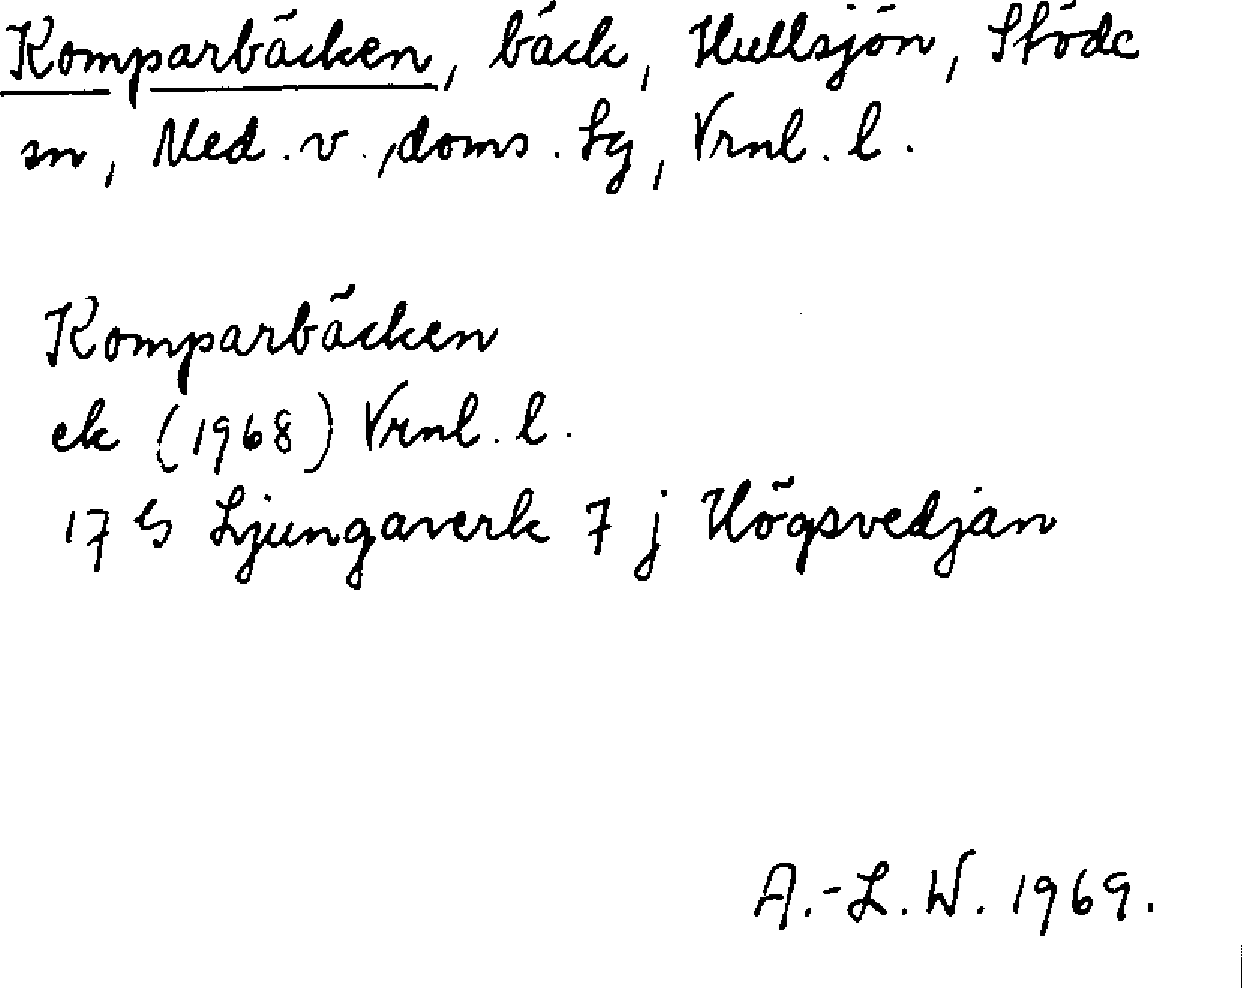 Komparbäcken, bäck, Hullsjön, Stöde
sn, Med. v., doms. sg, Vrnl. l.
Komparbäcken
ek (1968) Vrnl. l.
17 G Ljungaverk 7 j Högsvedjan
A.-L. W. 1969.